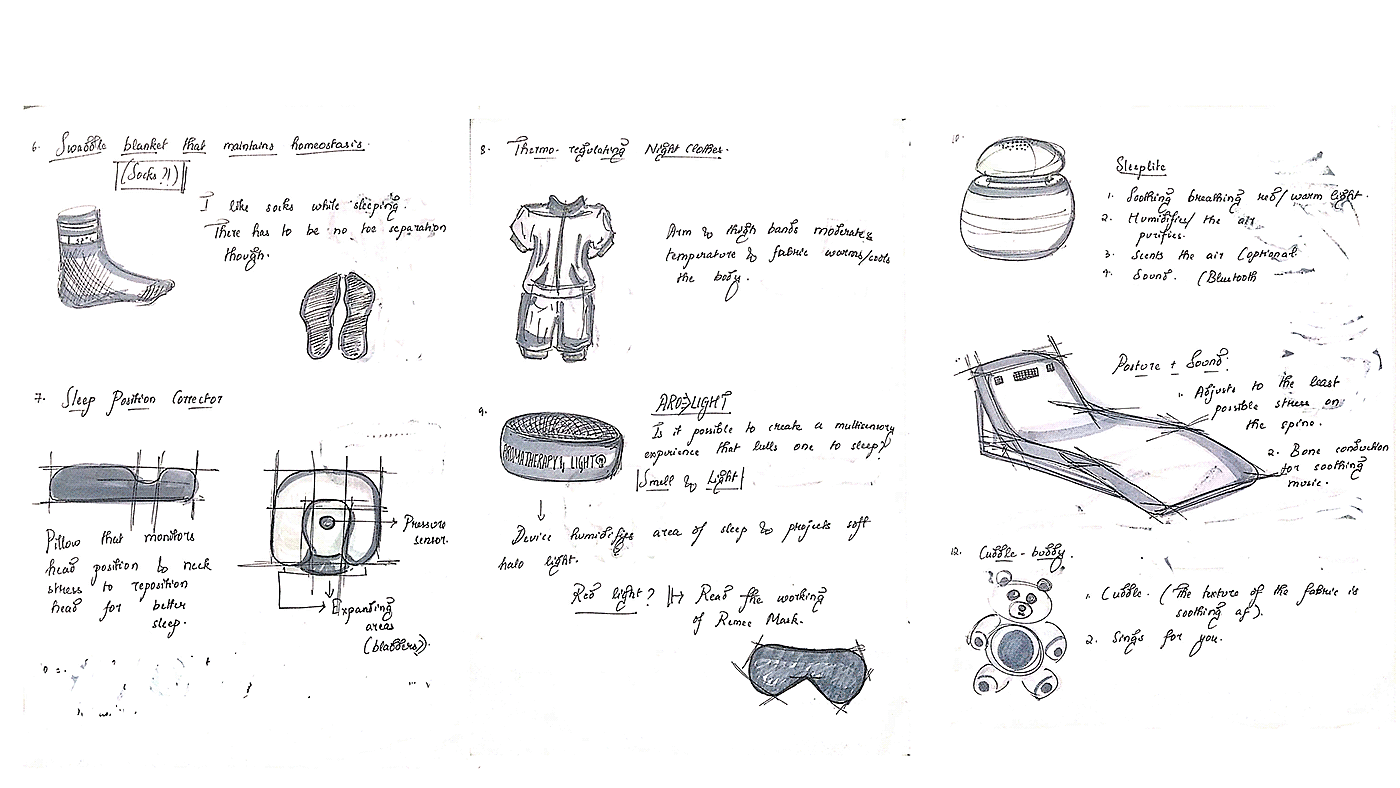 6. Swaddle blanket that maintains homeostasis.
(Socks?!)
I like socks while sleeping.
There has to be no toe separation
though.
7. Sleep Position Corrector
Pillow that monitors
head position & neck
stress to reposition
head for better
sleep.
Pressure
sensor.
Expanding
areas
(bladders?).
8. Thermo-regulating Night Clothes.
Arm & thigh bands moderate
temperature & fabric warms/cools
the body.
9.
AROLIGHT
AROMATHERAPY & LIGHT
Is it possible to create a multisensory
experience that lulls one to sleep?
Smell & Light
Device humidifies area of sleep & projects soft
halo light.
Red light? Read the working
of Remee Mask.
10.
Sleeplite
1. Soothing breathing red/warm light.
2. Humidifies/ the air
purifies.
3. Scents the air (optional
4. Sound. (Bluetooth
Posture + Sound.
1. Adjusts to the least
possible stress on
the spine.
2. Bone conduction
for soothing
music.
12. Cuddle-buddy.
1. Cuddle. (The texture of the fabric is
soothing af).
2. Sings for you.